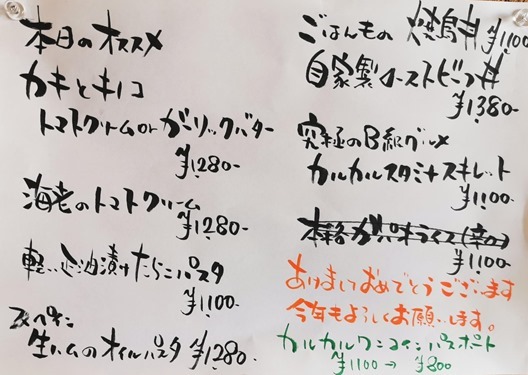 本日のオススメ
カキとキノコ
トマトクリームorガーリックバター
¥1280-
海老のトマトクリーム
¥1280-
軽い醤油漬けたらこパスタ
¥1100-
スペイン
生ハムのオイルパスタ ¥1280-
ごはんもの 焼鳥丼 ¥1100
自家製ローストビーフ丼
¥1380-
究極のB級グルメ
カルカルスタミナスキレット
¥1100-
¥1100-
あけましておめでとうございます
今年もよろしくお願いします。
カルカルワンコインパスポート
¥1100→¥800